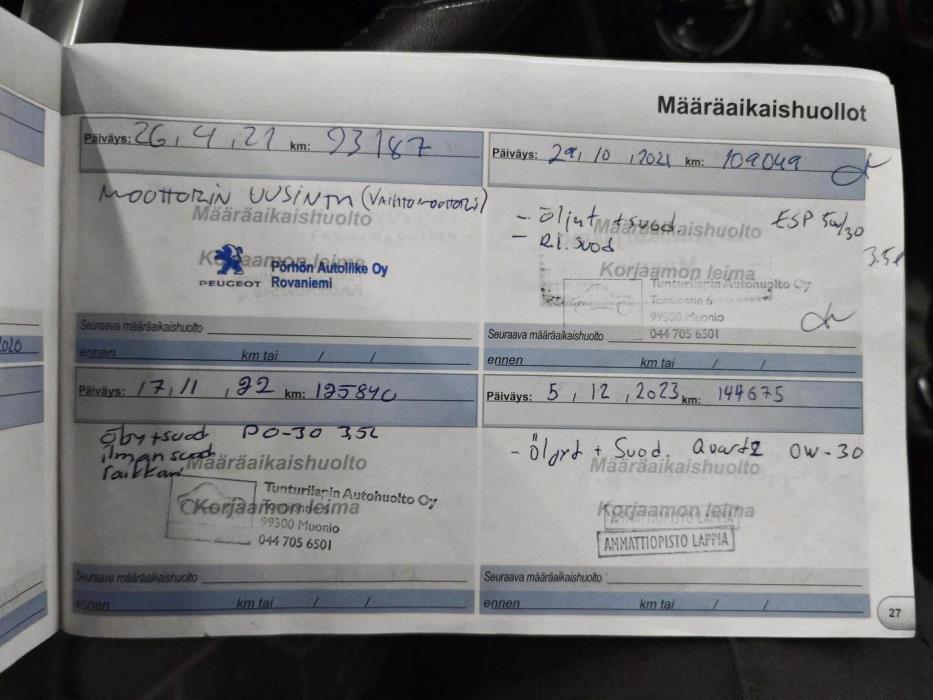 Määräaikaishuollot
Päiväys: 26, 4, 21 km: 93187
MOOTTORIN UUSINTA (VAIHTOMOOTTORI)
Määräaikaishuolto
Korjaamon leima
PEUGEOT
Pörhön Autoliike Oy
Rovaniemi
Seuraava määräaikaishuolto
ennen km tai / /
Päiväys: 29, 10, 2021 km: 109049
- Öljyt + suod ESP 5w/30
- R.i. suod 3.5l
Määräaikaishuolto
Korjaamon leima
Tunturilapin Autohuolto Oy
Torsiontie 6
99300 Muonio
044 705 6501
Seuraava määräaikaishuolto
ennen km tai / /
Päiväys: 17, 11, 22 km: 125840
öljy+suod 0-30 3,5L
ilmansuod
raitisan
Määräaikaishuolto
Korjaamon leima
Tunturilapin Autohuolto Oy
99300 Muonio
044 705 6501
Seuraava määräaikaishuolto
ennen km tai / /
Päiväys: 5, 12, 2023 km: 144675
- Öljyt + Suod. Quartz 0W-30
Määräaikaishuolto
Korjaamon leima
AMMATTIOPISTO LAPPIA
AMMATTIOPISTO LAPPIA
Seuraava määräaikaishuolto
ennen km tai / /
27
2020